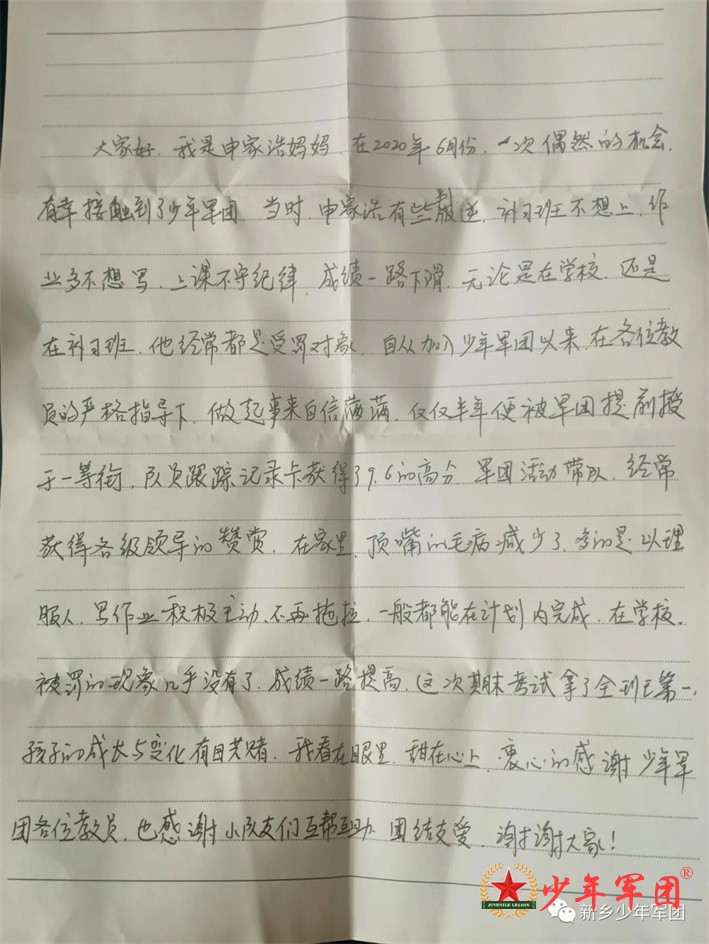 大家好,我是申家浩妈妈,在2020年6月份,一次偶然的机会,
有幸接触到了少年军团,当时,申家浩有些叛逆,补习班不想上,作
业多不想写,上课不守纪律,成绩一路下滑,无论是在学校,还是
在补习班,他经常都是受罚对象,自从加入少年军团以来,在各位教
员的严格指导下,做起事来自信满满,仅仅半年便被军团提前授
于一等衔,队员跟踪记录卡获得了9.6的高分,军团活动带队,经常
获得各级领导的赞赏,在家里,顶嘴的毛病减少了,多的是以理
服人,写作业积极主动、不再拖拉,一般都能在计划内完成,在学校,
被罚的现象几乎没有了,成绩一路提高,这次期末考试拿了全班第一,
孩子的成长与变化有目共睹,我看在眼里,甜在心上,衷心的感谢少年军
团各位教员,也感谢小队友们互帮互助,团结友爱,谢谢大家!
少年军团®
JUVENILE LEGION
新乡少年军团